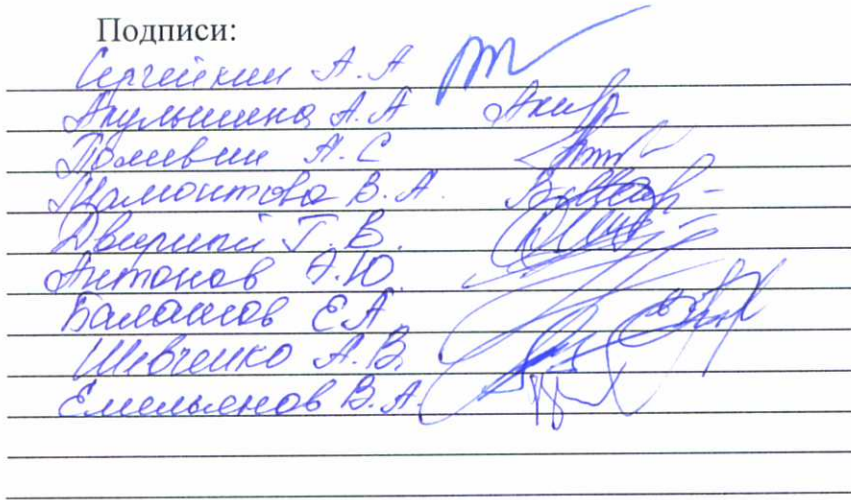 Подписи:
Сергейкин А.А
Акульшина А.А
А.С
Мамонтова В.А.
Дверный Г.В.
Антонов А.Ю.
Балашов Е.А
Шевченко А.В.
Емельянов В.А.